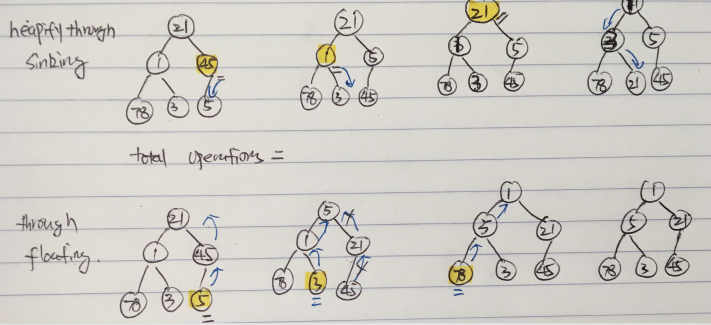 heapify through
sinking
21
1 45
78 3 5
21
1 5
78 3 45
21
5
78 3 45
5
78 21 45
total operations =
through
floating.
21
1 45
78 3 5
5
1 21
78 3 45
1
21
78 3 45
1
5 21
78 3 45